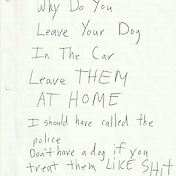 Why Do You
Leave Your Dog
In The Car
Leave THEM
AT HOME
I should have called the
police
Don't have a dog if you
treat them LIKE SHiT